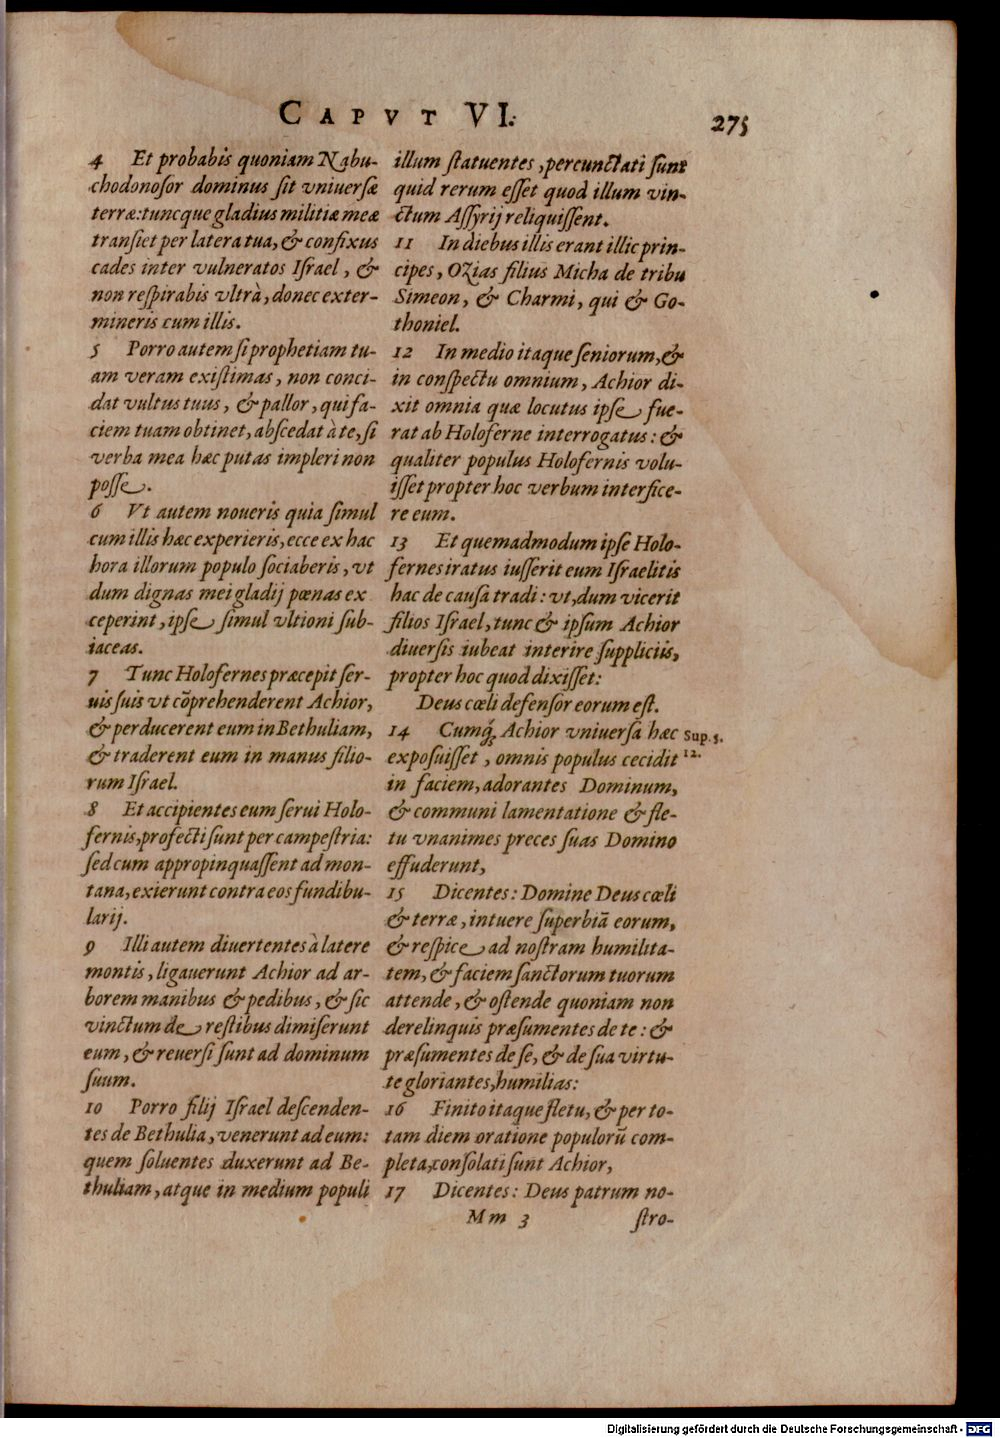 CAPVT VI.
275
4 Et probabis quoniam Nabu-
chodonosor dominus sit vniuersæ
terræ: tuncque gladius militiæ meæ
transiet per latera tua, & confixus
cades inter vulneratos Israel, &
non respirabis vltrà, donec exter-
mineris cum illis.
5 Porro autem si prophetiam tu-
am veram existimas, non conci-
dat vultus tuus, & pallor, qui fa-
ciem tuam obtinet, abscedat à te, si
verba mea hæc putas impleri non
posse.
6 Vt autem noueris quia simul
cum illis hæc experieris, ecce ex hac
hora illorum populo sociaberis, vt
dum dignas mei gladij pœnas ex
ceperint, ipse simul vltioni sub-
iaceas.
7 Tunc Holofernes præcepit ser-
uis suis vt cõprehenderent Achior,
& perducerent eum in Bethuliam,
& traderent eum in manus filio-
rum Israel.
8 Et accipientes eum serui Holo-
fernis, profecti sunt per campestria:
sed cum appropinquassent ad mon-
tana, exierunt contra eos fundibu-
larij.
9 Illi autem diuertentes à latere
montis, ligauerunt Achior ad ar-
borem manibus & pedibus, & sic
vinctum de restibus dimiserunt
eum, & reuersi sunt ad dominum
suum.
10 Porro filij Israel descenden-
tes de Bethulia, venerunt ad eum:
quem soluentes duxerunt ad Be-
thuliam, atque in medium populi
illum statuentes, percunctati sunt
quid rerum esset quod illum vin-
ctum Assyrij reliquissent.
11 In diebus illis erant illic prin-
cipes, Ozias filius Micha de tribu
Simeon, & Charmi, qui & Go-
thoniel.
12 In medio itaque seniorum, &
in conspectu omnium, Achior di-
xit omnia quæ locutus ipse fue-
rat ab Holoferne interrogatus: &
qualiter populus Holofernis volu-
isset propter hoc verbum interfice-
re eum.
13 Et quemadmodum ipse Holo-
fernes iratus iusserit eum Israelitis
hac de causa tradi: vt, dum vicerit
filios Israel, tunc & ipsum Achior
diuersis iubeat interire suppliciis,
propter hoc quod dixisset:
Deus cœli defensor eorum est.
14 Cumq́; Achior vniuersa hæc
exposuisset, omnis populus cecidit
in faciem, adorantes Dominum,
& communi lamentatione & fle-
tu vnanimes preces suas Domino
effuderunt,
15 Dicentes: Domine Deus cœli
& terræ, intuere superbiã eorum,
& respice ad nostram humilita-
tem, & faciem sanctorum tuorum
attende, & ostende quoniam non
derelinquis præsumentes de te: &
præsumentes de se, & de sua virtu-
te gloriantes, humilias:
16 Finito itaque fletu, & per to-
tam diem oratione populorũ com-
pleta, consolati sunt Achior,
17 Dicentes: Deus patrum no-
Sup. 5.
12.
Mm 3
stro-
Digitalisierung gefördert durch die Deutsche Forschungsgemeinschaft - DFG